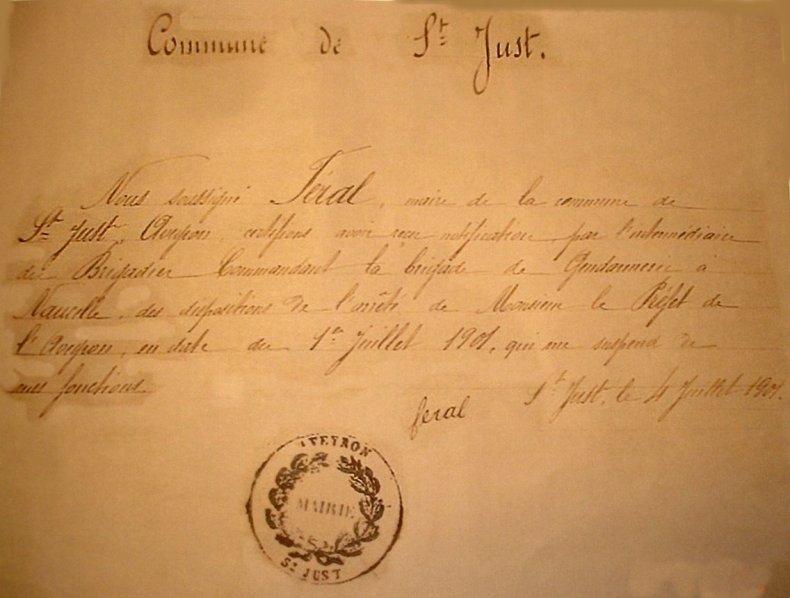 Commune de St Just.
Nous soussigné Féral, maire de la commune de
St Just, Aveyron, certifions avoir reçu notification, par l'intermédiaire
du Brigadier Commandant la brigade de Gendarmerie à
Naucelle, des dispositions de l'arrêté de Monsieur le Préfet de
l'Aveyron, en date du 1er Juillet 1901, qui me suspend de
mes fonctions.
St Just, le 4 Juillet 1901.
feral
AVEYRON
MAIRIE
St JUST